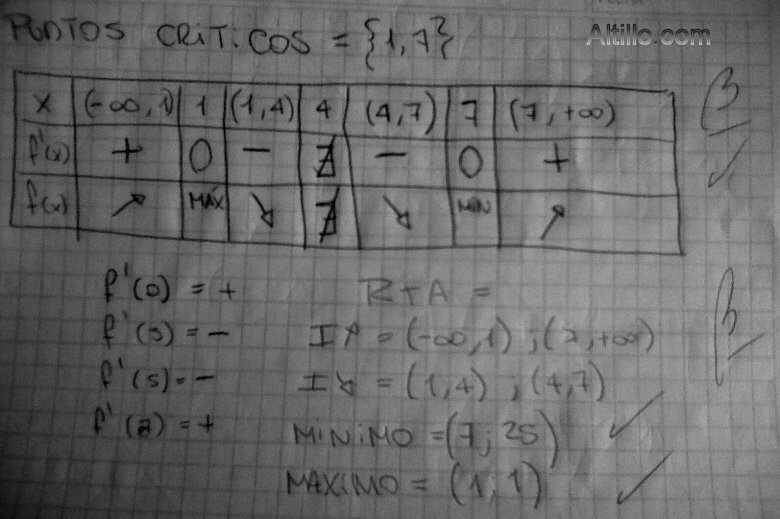 PUNTOS CRITICOS = {1,7}
Altillo.com
X (-∞,1) 1 (1,4) 4 (4,7) 7 (7,+∞)
f'(x) + 0 - ∄ - 0 +
f(x) ↗ MÁX ↘ ∄ ↘ MIN ↗
B
f'(0) = + RTA =
f'(3) = - I↗ = (-∞,1) ; (7,+∞)
f'(5) = - I↘ = (1,4) ; (4,7)
f'(8) = + MINIMO = (7; 25)
MAXIMO = (1; 1)